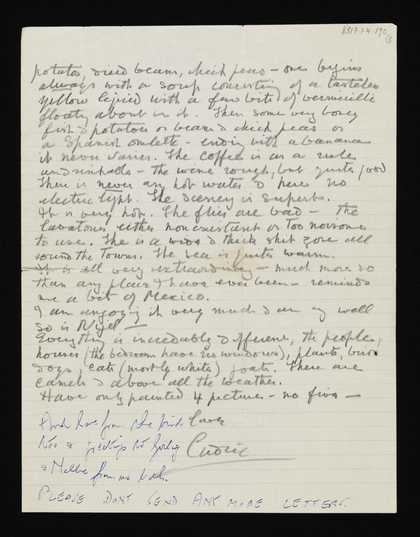 potatoes, dried beans, chick peas – one begins
always with a soup consisting of a tasteless
yellow liquid with a few bits of vermicelli
floating about in it. Then some very boney
fish & potatoes or beans & chick peas or
a Spanish omelette – ending with a banana
it never varies. The coffee is as a rule
undrinkable – the wine rough, but quite good
There is never any hot water & here no
electric light. The scenery is superb.
It is very hot. The flies are bad – the
lavatories either nonexistant or too noisome
to use. There is a wide & thick shit zone all
round the towns. The sea is quite warm.
It is all very extraordinary – much more so
than any place I have ever been – reminds
me a bit of Mexico.
I am enjoying it very much & am very well
so is Nigel –
Everything is incredibly different, the people,
houses (the bedrooms have no windows), plants, birds
dogs, cats (mostly white), goats. There are
camels & above all the weather.
Have only painted 4 pictures – no five –
love from the
love
Cedric
& Millie from me
PLEASE DONT SEND ANY MORE LETTERS.